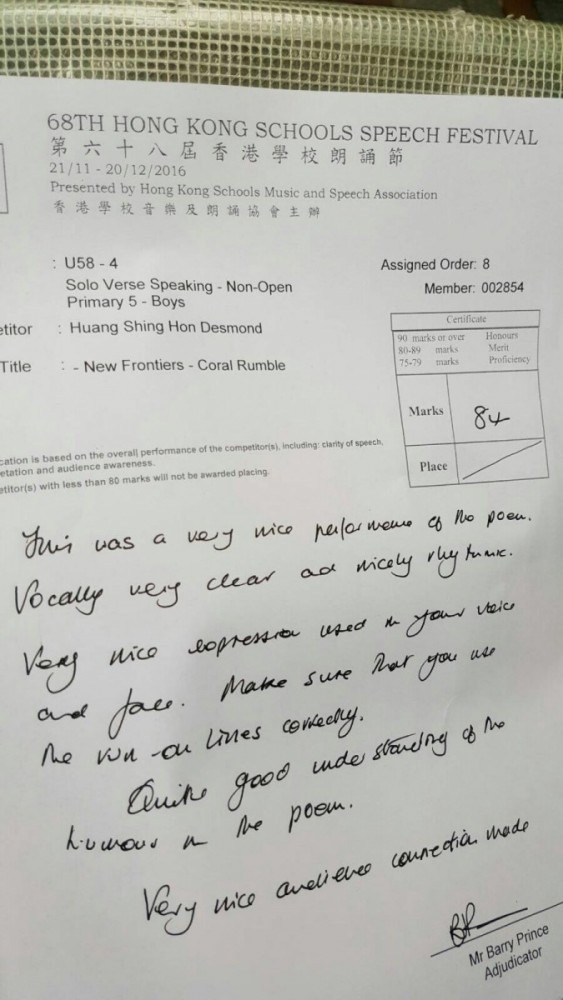 68TH HONG KONG SCHOOLS SPEECH FESTIVAL
第六十八屆香港學校朗誦節
21/11 - 20/12/2016
Presented by Hong Kong Schools Music and Speech Association
香港學校音樂及朗誦協會主辦
: U58 - 4
Assigned Order: 8
Solo Verse Speaking - Non-Open
Member: 002854
Primary 5 - Boys
etitor : Huang Shing Hon Desmond
Title : - New Frontiers - Coral Rumble
Certificate
90 marks or over Honours
80-89 marks Merit
75-79 marks Proficiency
Marks 84
Place
cation is based on the overall performance of the competitor(s), including: clarity of speech,
etation and audience awareness.
etitor(s) with less than 80 marks will not be awarded placing.
This was a very nice performance of the poem.
Vocally very clear and nicely rhythmic.
Very nice expression used in your voice
and face. Make sure that you use
the run-on lines correctly.
Quite good understanding of the
humour in the poem.
Very nice audience connection made
BP
Mr Barry Prince
Adjudicator